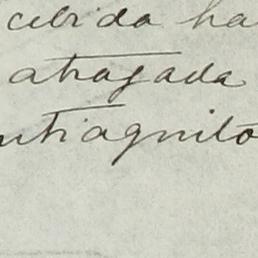 cebida ha
atragada
ntiagnito